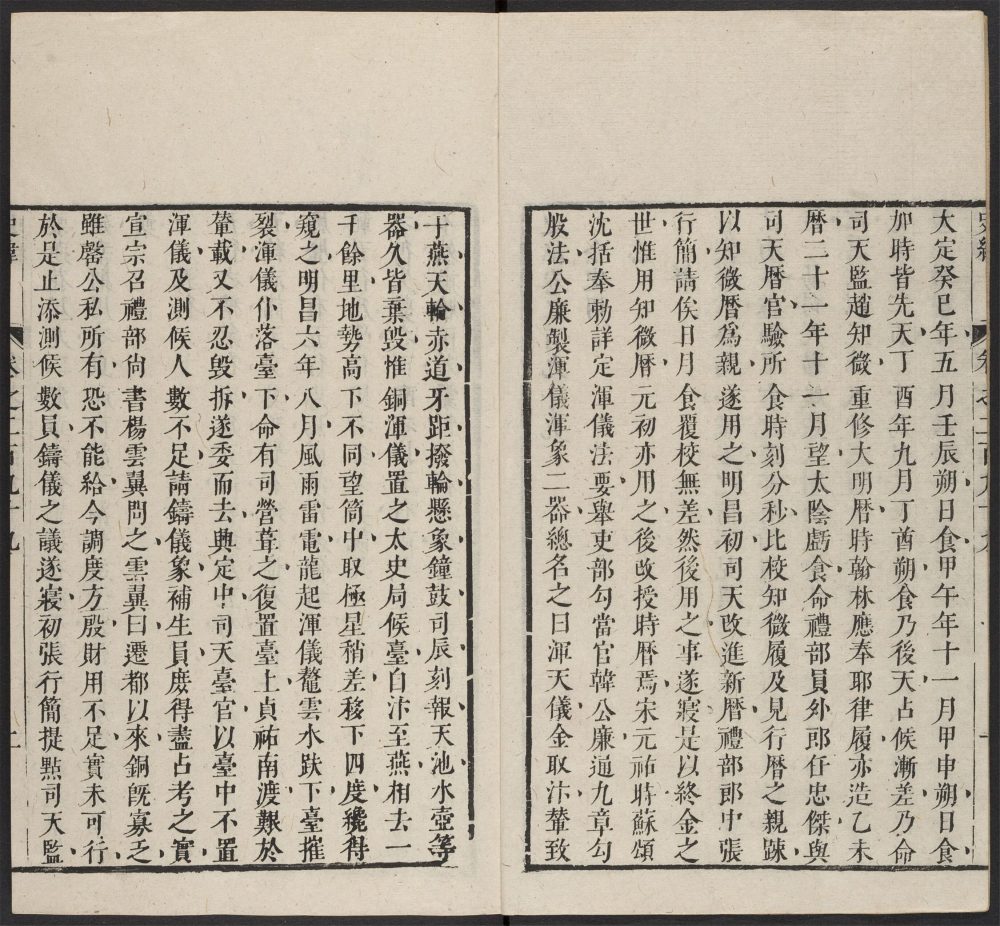 大定癸巳年五月壬辰朔日食甲午年十一月甲申朔日食
加時皆先天丁酉年九月丁酉朔食乃後天占候漸差乃命
司天監趙知微重修大明曆時翰林應奉耶律履亦造乙未
曆二十一年十一月望太陰虧食命禮部員外郎任忠傑與
司天曆官驗所食時刻分秒比校知微履及見行曆之親踈
以知微曆爲親遂用之明昌初司天改進新曆禮部郎中張
行簡請俟日月食覆校無差然後用之事遂寢是以終金之
世惟用知微曆元初亦用之後改授時曆焉宋元祐時蘇頌
沈括奉勅詳定渾儀法要舉吏部勾當官韓公廉通九章勾
股法公廉製渾儀渾象二器總名之曰渾天儀金取汴輦致
于燕天輪赤道牙距撥輪懸象鐘鼓司辰刻報天池水壺等
器久皆棄毀惟銅渾儀置之太史局候臺自汴至燕相去一
千餘里地勢高下不同望筒中取極星稍差移下四度纔得
窺之明昌六年八月風雨雷電龍起渾儀鼇雲水趺下臺摧
裂渾儀仆落臺下命有司營葺之復置臺上貞祐南渡艱於
輦載又不忍毀拆遂委而去典定中司天臺官以臺中不置
渾儀及測候人數不足請鑄儀象補生員庶得盡占考之實
宣宗召禮部尙書楊雲翼問之雲翼曰遷都以來銅旣寡乏
雖罄公私所有恐不能給今調度方殷財用不足實未可行
於是止添測候數員鑄儀之議遂寢初張行簡提點司天監